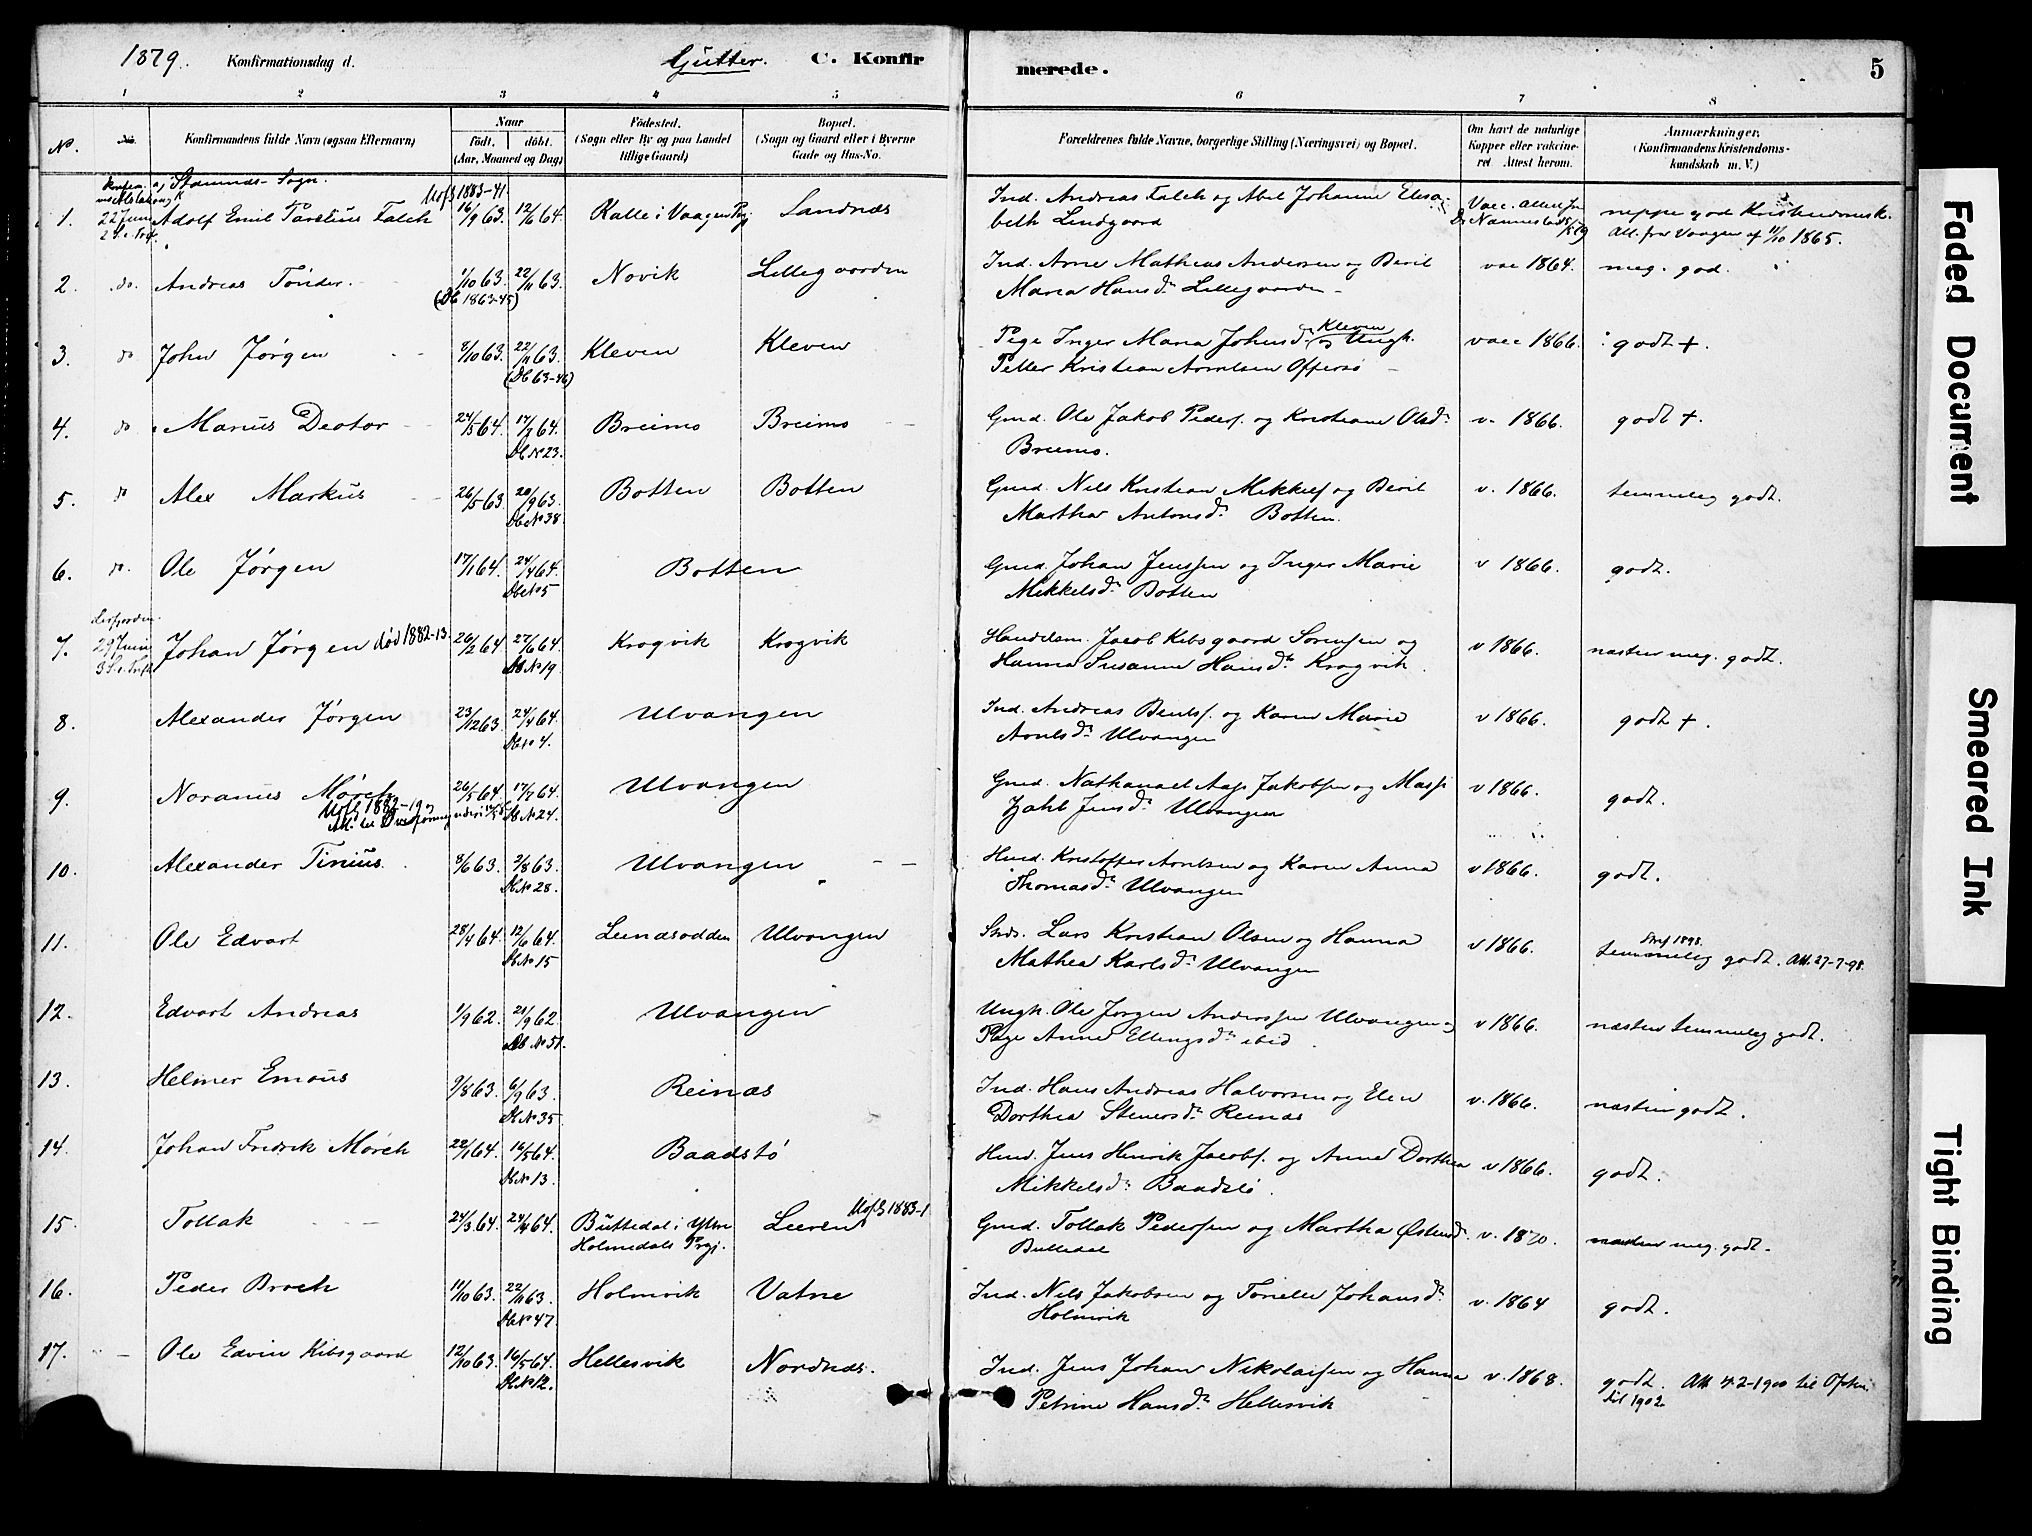 1879. Konfirmationsdag d. Gutter. C. Konfirmerede. 5
1 2 3 4 5 6 7 8
No. Konfirmandens fulde Navn (ogsaa Efternavn) Naar födt. döbt. (Aar, Maaned og Dag) Födested. (Sogn eller By og paa Landet tillige Gaard) Bopæl. (Sogn og Gaard eller i Byerne Gade og Hus-No. Forældrenes fulde Navne, borgerlige Stilling (Næringsvei) og Bopæl. Om havt de naturlige Kopper eller vakcineret. Attest herom. Anmærkninger. (Konfirmandens Kristendomskundskab m. V.)
Stamnæs-Sogn.
1. 22 Juni Adolf Emil Parelius Falch 16/9 63. 12/6 64. Kalle i Vaagen Prgj. Sandnæs Ind. Andreas Falch og Abel Johanne Elisa-
beth Lindgaard neppe god Kristendomsk.
Att. fra Vaagen af 11/10 1865.
2. do. Andreas Tönder. 1/10 63. 22/11 63. Novik Lillegaarden Ind. Arne Mathias Andersen og Beril vac 1864. meg. god.
(Db 1863-45) Maria Hansd. Lillegaarden
3. do John Jørgen 8/10 63. 22/11 63. Kleven Kleven Pige Inger Maria Johnsd. Kleven og Ungk. vacc 1866. godt +.
(Db 63-46) Petter Kristian Arntsen Offersø
4. do Marius Deotor 24/5 64. 17/7 64. Breimo Breimo Gmd. Ole Jakob Peders. og Kristiane Olsd. v. 1866. godt +.
Db No 23. Breimo.
5. do Alex Markus 26/5 63. 20/9 63. Botten Botten Gmd. Nils Kristian Mikkels. og Beril v. 1866. temmelig godt.
Db No 38. Martha Antonsd. Botten.
6. do. Ole Jørgen 17/1 64. 24/4 64. Botten Gmd. Johan Jenssen og Inger Marie v 1866. godt.
Db No 5 Mikkelsd. Botten
7. 29 Juni Johan Jørgen død 1882-13. 26/2 64. 27/6 64. Krogvik Krogvik Handelsm. Jacob Kibsgaard Sørensen og v 1866. næsten meg. godt.
3 S. e. Trft. Db No 19. Hanna Susanna Hansd. Krogvik.
8. Alexander Jørgen 23/12 63. 24/4 64. Ulvangen Ind. Andreas Bents. og Karen Marie v 1866. godt +.
Db No 4. Arntsd. Ulvangen
9. Noranus Mørch 26/5 64. 17/7 64. Ulvangen Gmd. Nathanael Aage Jakobsen og Massi v 1866. godt.
Db No 24. Jensd. Ulvangen
10. Alexander Tinius. 3/6 63. 2/8 63. Ulvangen Hmd. Kristoffer Arntsen og Karen Anna v 1866. godt.
Db No 28. Thomasd. Ulvangen
11. Ole Edvart 28/4 64. 12/6 64. Leinesodden Ulvangen Lars Kristian Olsen og Hanna v 1866. temmelig godt. Att. 27-7-98.
Db No 15 Mathea Karlsd. Ulvangen
12. Edvart Andreas 1/9 62. 21/9 62. Ulvangen Ungk. Ole Jørgen Anderssen Ulvangen og v 1866. næsten temmelig godt.
Db No 51. Pige Anne Ellingsd. ibid.
13. Helmer Emaus 9/8 63. 6/9 63. Reinæs Ind. Hans Andreas Halvorsen og Elen v. 1866. næsten godt.
Db No 35 Dorthea Steensd. Reinæs
14. Johan Fredrik Mørch 22/1 64. 16/5 64. Baadstø Hmd. Jens Henrik Jacobs. og Anne Dorthea v 1866. godt.
Db No 13. Mikkelsd. Baadstø.
15 Tollak 24/3 64. 24/4 64. Buttedal i Yttre Leeren Utfl 1883-1 Gmd. Tollak Pedersen og Martha Østensd. v. 1870. næsten meg. godt.
Holmedals Prgj. Buttedal
16. Peder Broch 11/10 63. 22/11 63. Holmvik Vatne Ind. Nils Jakobsen og Torielle Johansd. v. 1864 godt.
Db No 47. Holmvik
17. Ole Edvin Kibsgaard 12/10 63. 16/5 64. Hellesvik Nordnæs. Ind. Jens Johan Nikolaisen og Hanna v. 1868. godt. Att 4-2-1900 til Ofoten
Db No 12. Petrine Hansd. Hellesvik til 1902
Faded Document
Smeared Ink
Tight Binding